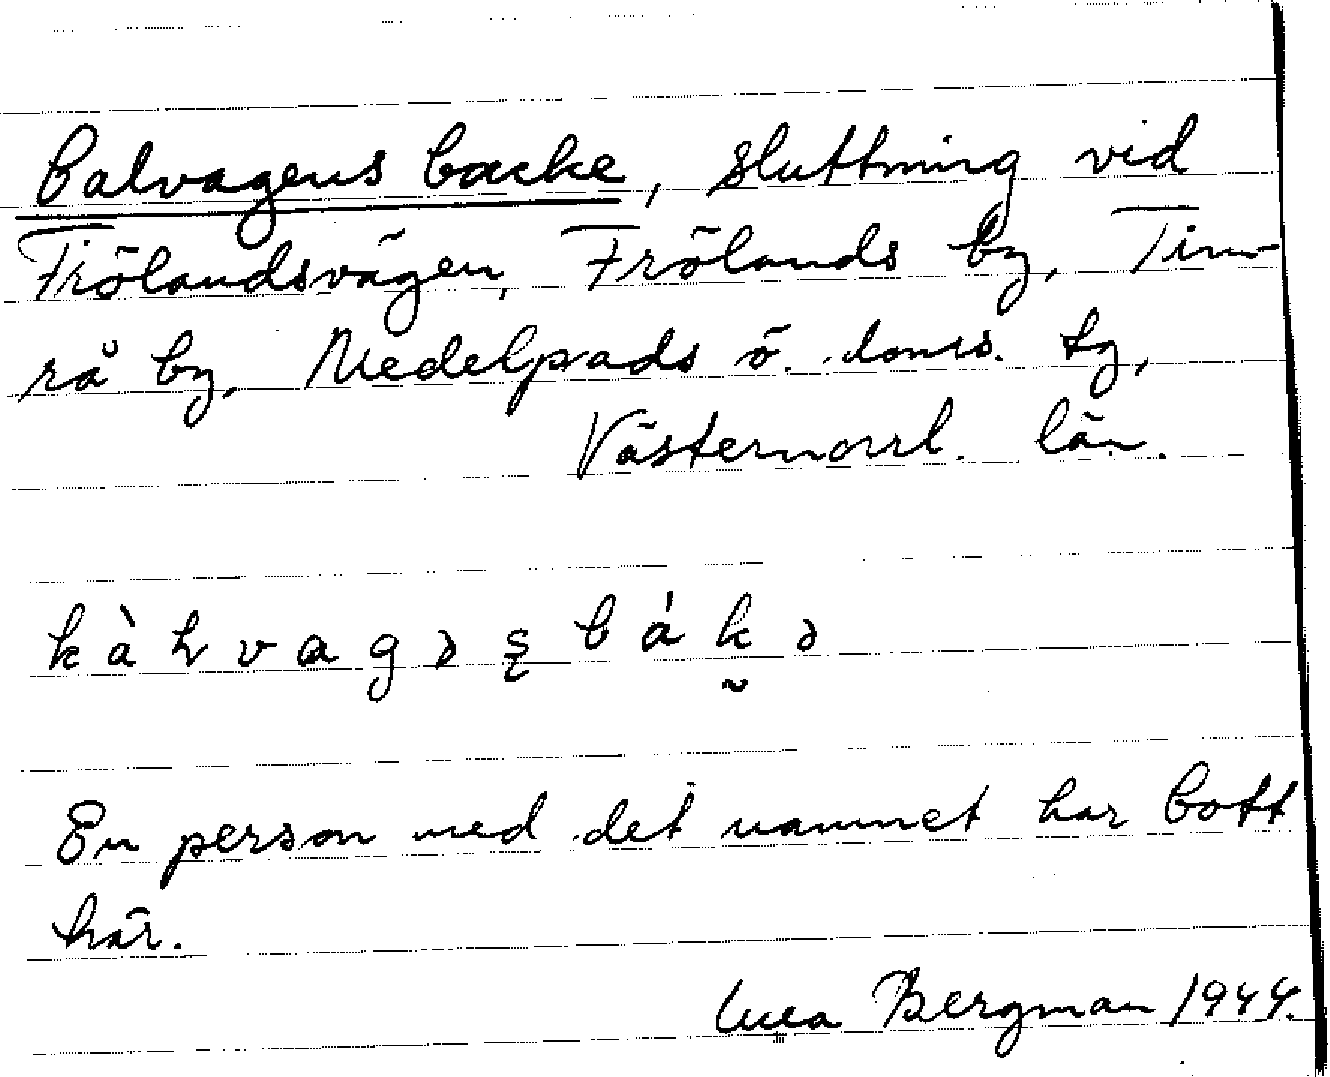 Calvagens backe, sluttning vid
Frölandsvägen, Frölands by, Tim-
rå by, Medelpads ö. doms. tg,
Västernorrl. län.
k à h v a g ə s̨ b á k̰ ə
En person med det namnet har bott
här.
Bergman 1944.